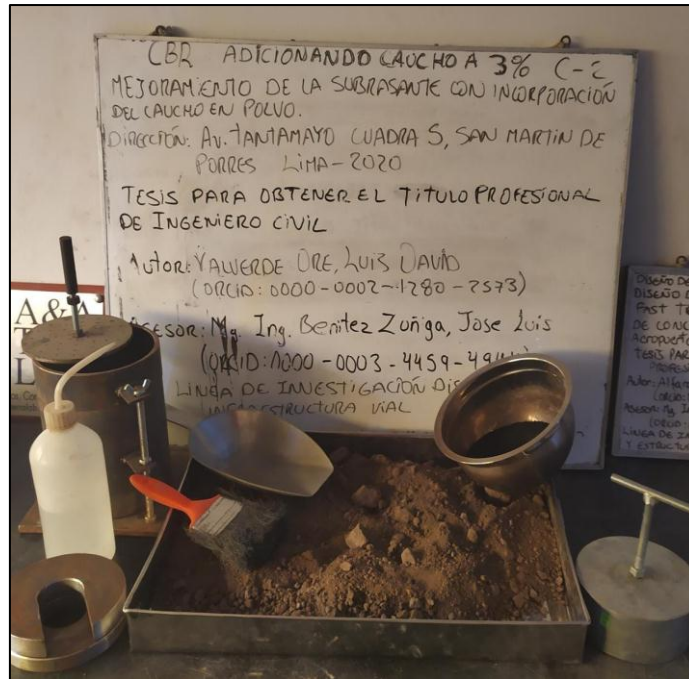 CBR ADICIONANDO CAUCHO A 3% C-2
MEJORAMIENTO DE LA SUBRASANTE CON INCORPORACIÓN
DEL CAUCHO EN POLVO.
DIRECCIÓN: AV. TANTAMAYO CUADRA 5, SAN MARTIN DE
PORRES LIMA-2020
TESIS PARA OBTENER EL TITULO PROFESIONAL
DE INGENIERO CIVIL
Autor: VALVERDE ORE, LUIS DAVID
(ORCID: 0000-0002-1280-2573)
ASESOR: Mg. Ing. Benitez Zuñiga, Jose Luis
(ORCID: 0000-0003-4459-
LINEA DE INVESTIGACIÓN
INFRAESTRUCTURA VIAL
A&A
T
L
DISEÑO DE
DISEÑO
FAST
DE CONC
Aeropuerto
TESIS PAR
PROFES
Autor: Alfa
(ORCID:
Asesor: Mg. In
(ORCID:
LINEA DE IN
Y ESTRUCTU